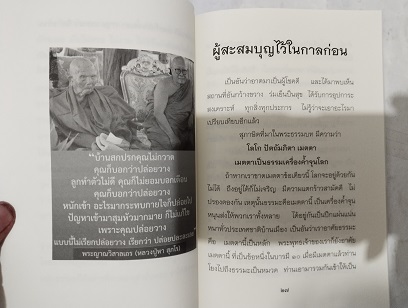 “บ้านสกปรกคุณไม่กวาด
คุณก็บอกว่าปล่อยวาง
ลูกทำตัวไม่ดี คุณก็ไม่ยอมบอกเตือน
คุณก็บอกว่าปล่อยวาง
หนักเข้า อะไรมากระทบกายใจก็ปล่อยไป
ปัญหาเข้ามาสุมหัวมากมาย ก็ไม่แก้ไข
เพราะคุณปล่อยวาง
แบบนี้ไม่เรียกปล่อยวาง เรียกว่า ปล่อยปละละเลย”
พระญาณวิศาลเถร (หลวงปู่หา สุภโร)
ผู้สะสมบุญไว้ในกาลก่อน
เป็นอันว่าอาตมาเป็นผู้โชคดี และได้มาพบเห็น
สถานที่อันกว้างขวาง ร่มเย็นเป็นสุข ได้รับการอุปการะ
สงเคราะห์ ทุกสิ่งทุกประการ ไม่รู้ว่าจะเอาอะไรมา
เปรียบเทียบอีกแล้ว
สุภาษิตที่มาในพระธรรมบท มีความว่า
โลโก ปัตถัมภิกา เมตตา
เมตตาเป็นธรรมเครื่องค้ำจุนโลก
ถ้าหากเราขาดเมตตาข้อเดียวนี้ โลกจะอยู่ด้วยกัน
ไม่ได้ ถึงอยู่ได้ก็ไม่เจริญ มีความแตกร้าวสามัคคี ไม่
ปรองดองกัน เหตุนั้นธรรมะคือเมตตานี้ เป็นเครื่องค้ำจุน
หนุนส่งให้พวกเราทั้งหลาย ได้อยู่กันเป็นปึกแผ่นแน่น
หนาทั่วประเทศชาติบ้านเมือง เป็นอันว่าเราอาศัยธรรมะ
คือ เมตตานี้เป็นหลัก พระพุทธเจ้าของเราก็ยังอาศัย
เมตตานี้ ที่เป็นข้อหนึ่งในบารมี ๑๐ เมื่อมีเมตตาแล้วทาน
โยงไปถึงธรรมะเป็นหมวด ท่านเอามารวมกันเข้าให้เป็น
๒๗